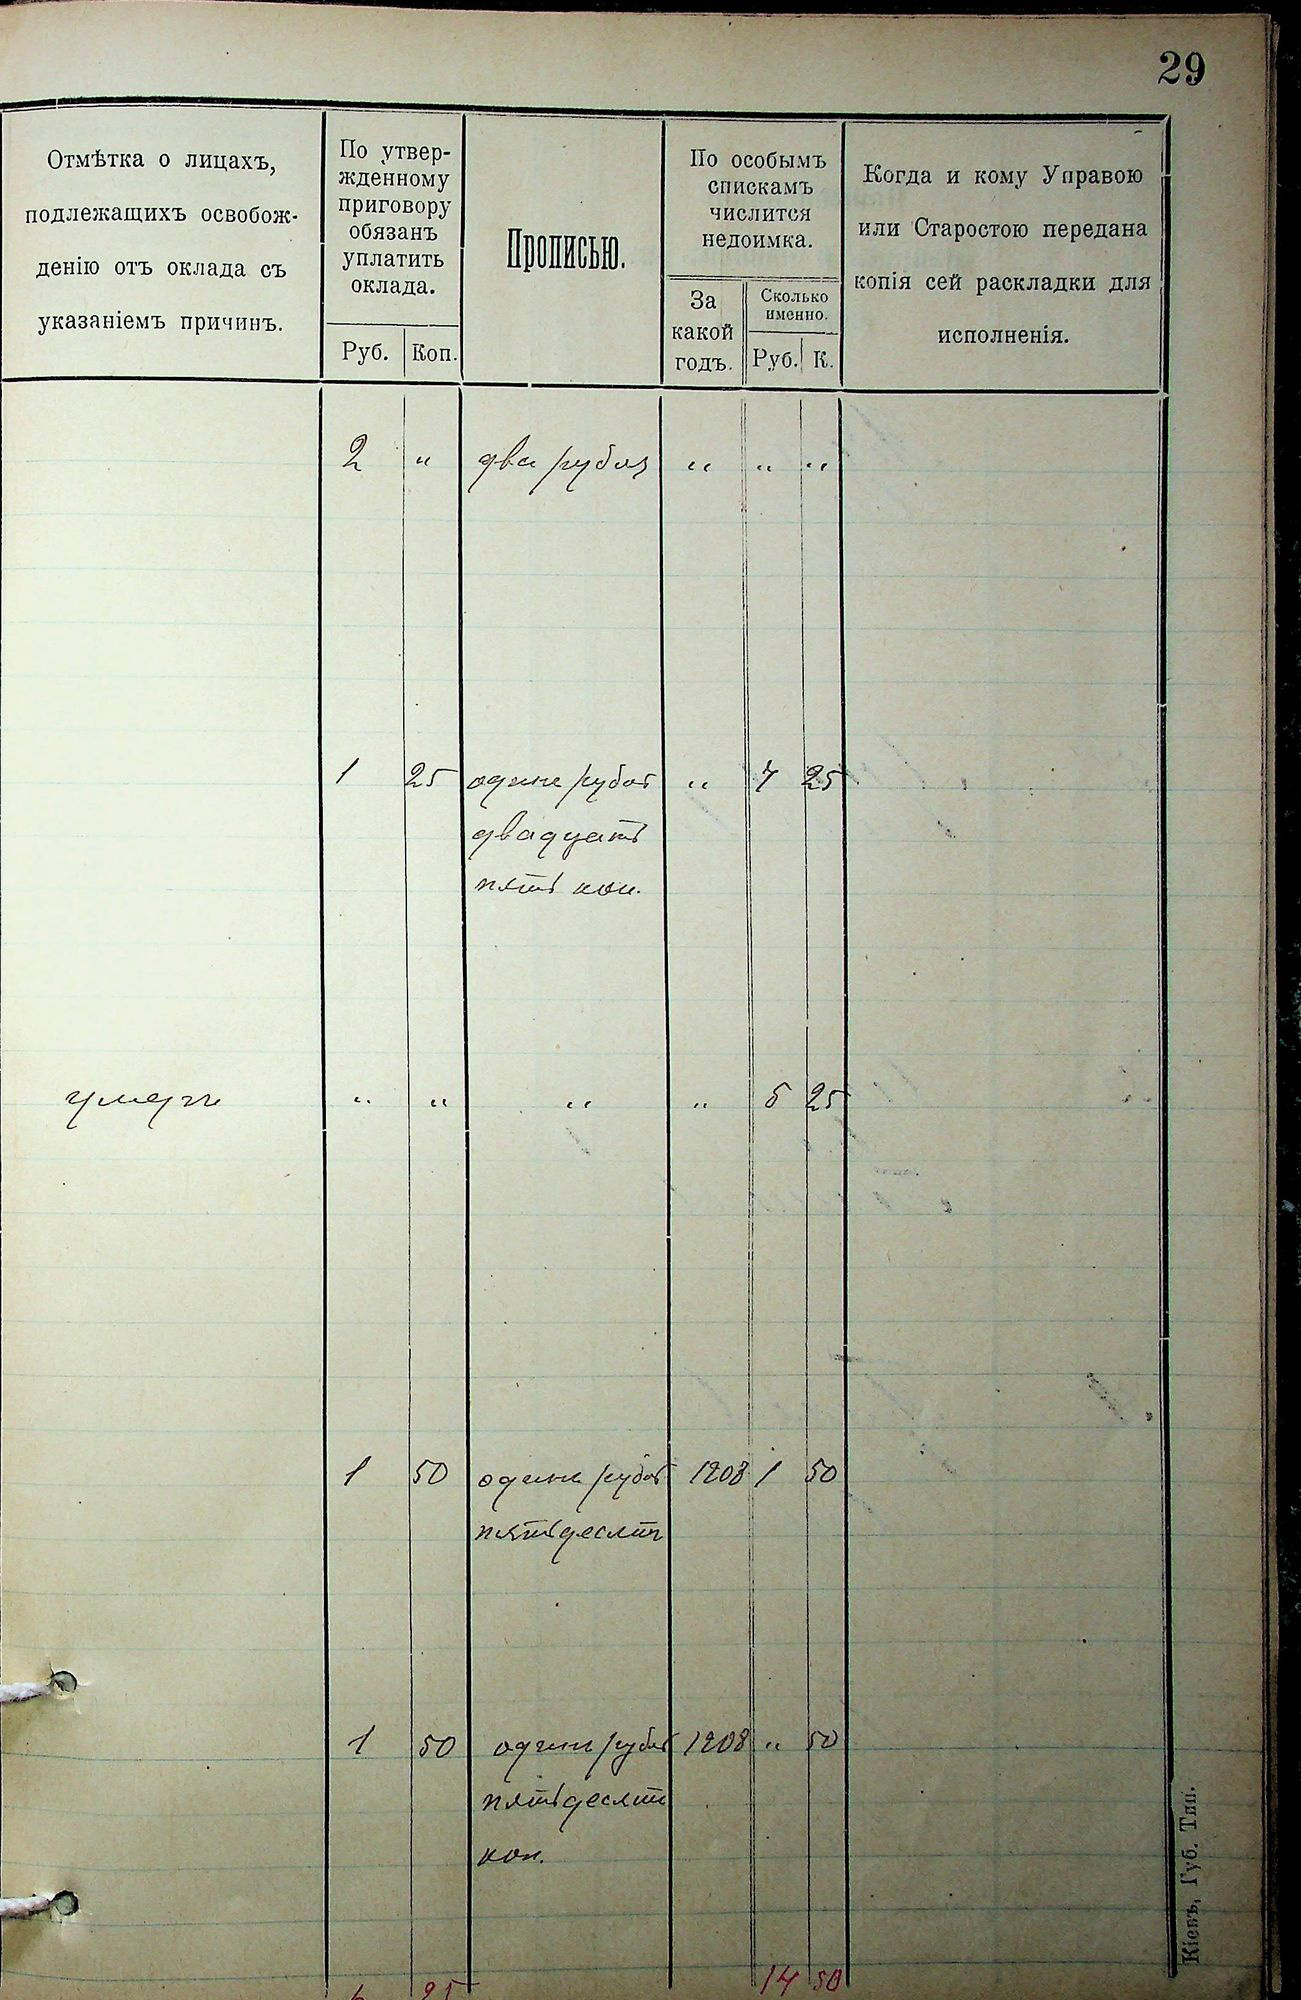 29
Отмѣтка о лицахъ,
подлежащихъ освобож-
денію отъ оклада съ
указаніемъ причинъ.
По утвер-
жденному
приговору
обязанъ
уплатить
оклада.
Руб. Коп.
Прописью.
По особымъ
спискамъ
числится
недоимка.
За
какой
годъ.
Сколько
именно.
Руб. К.
Когда и кому Управою
или Старостою передана
копія сей раскладки для
исполненія.
2 " два рубля " " "
1 25 одинъ рубль " 7 25
двадцать
пять коп.
умеръ " " " " 5 25
1 50 одинъ рубль 1908 1 50
пятьдесятъ
1 50 одинъ рубль 1908 " 50
пятьдесят
коп.
6 25 14 50
Кіевъ, Губ. Тип.